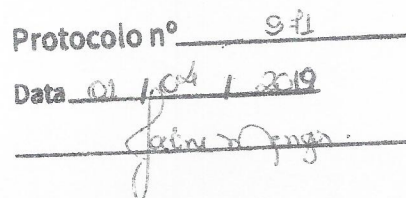 Protocolo nº 971
Data 01 / 04 / 2019